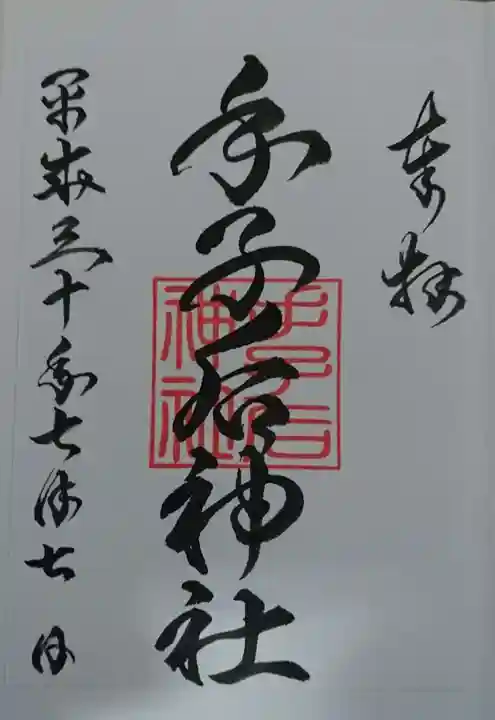 奉拝
手子后神社
手子后神社
平成三十年七月七日